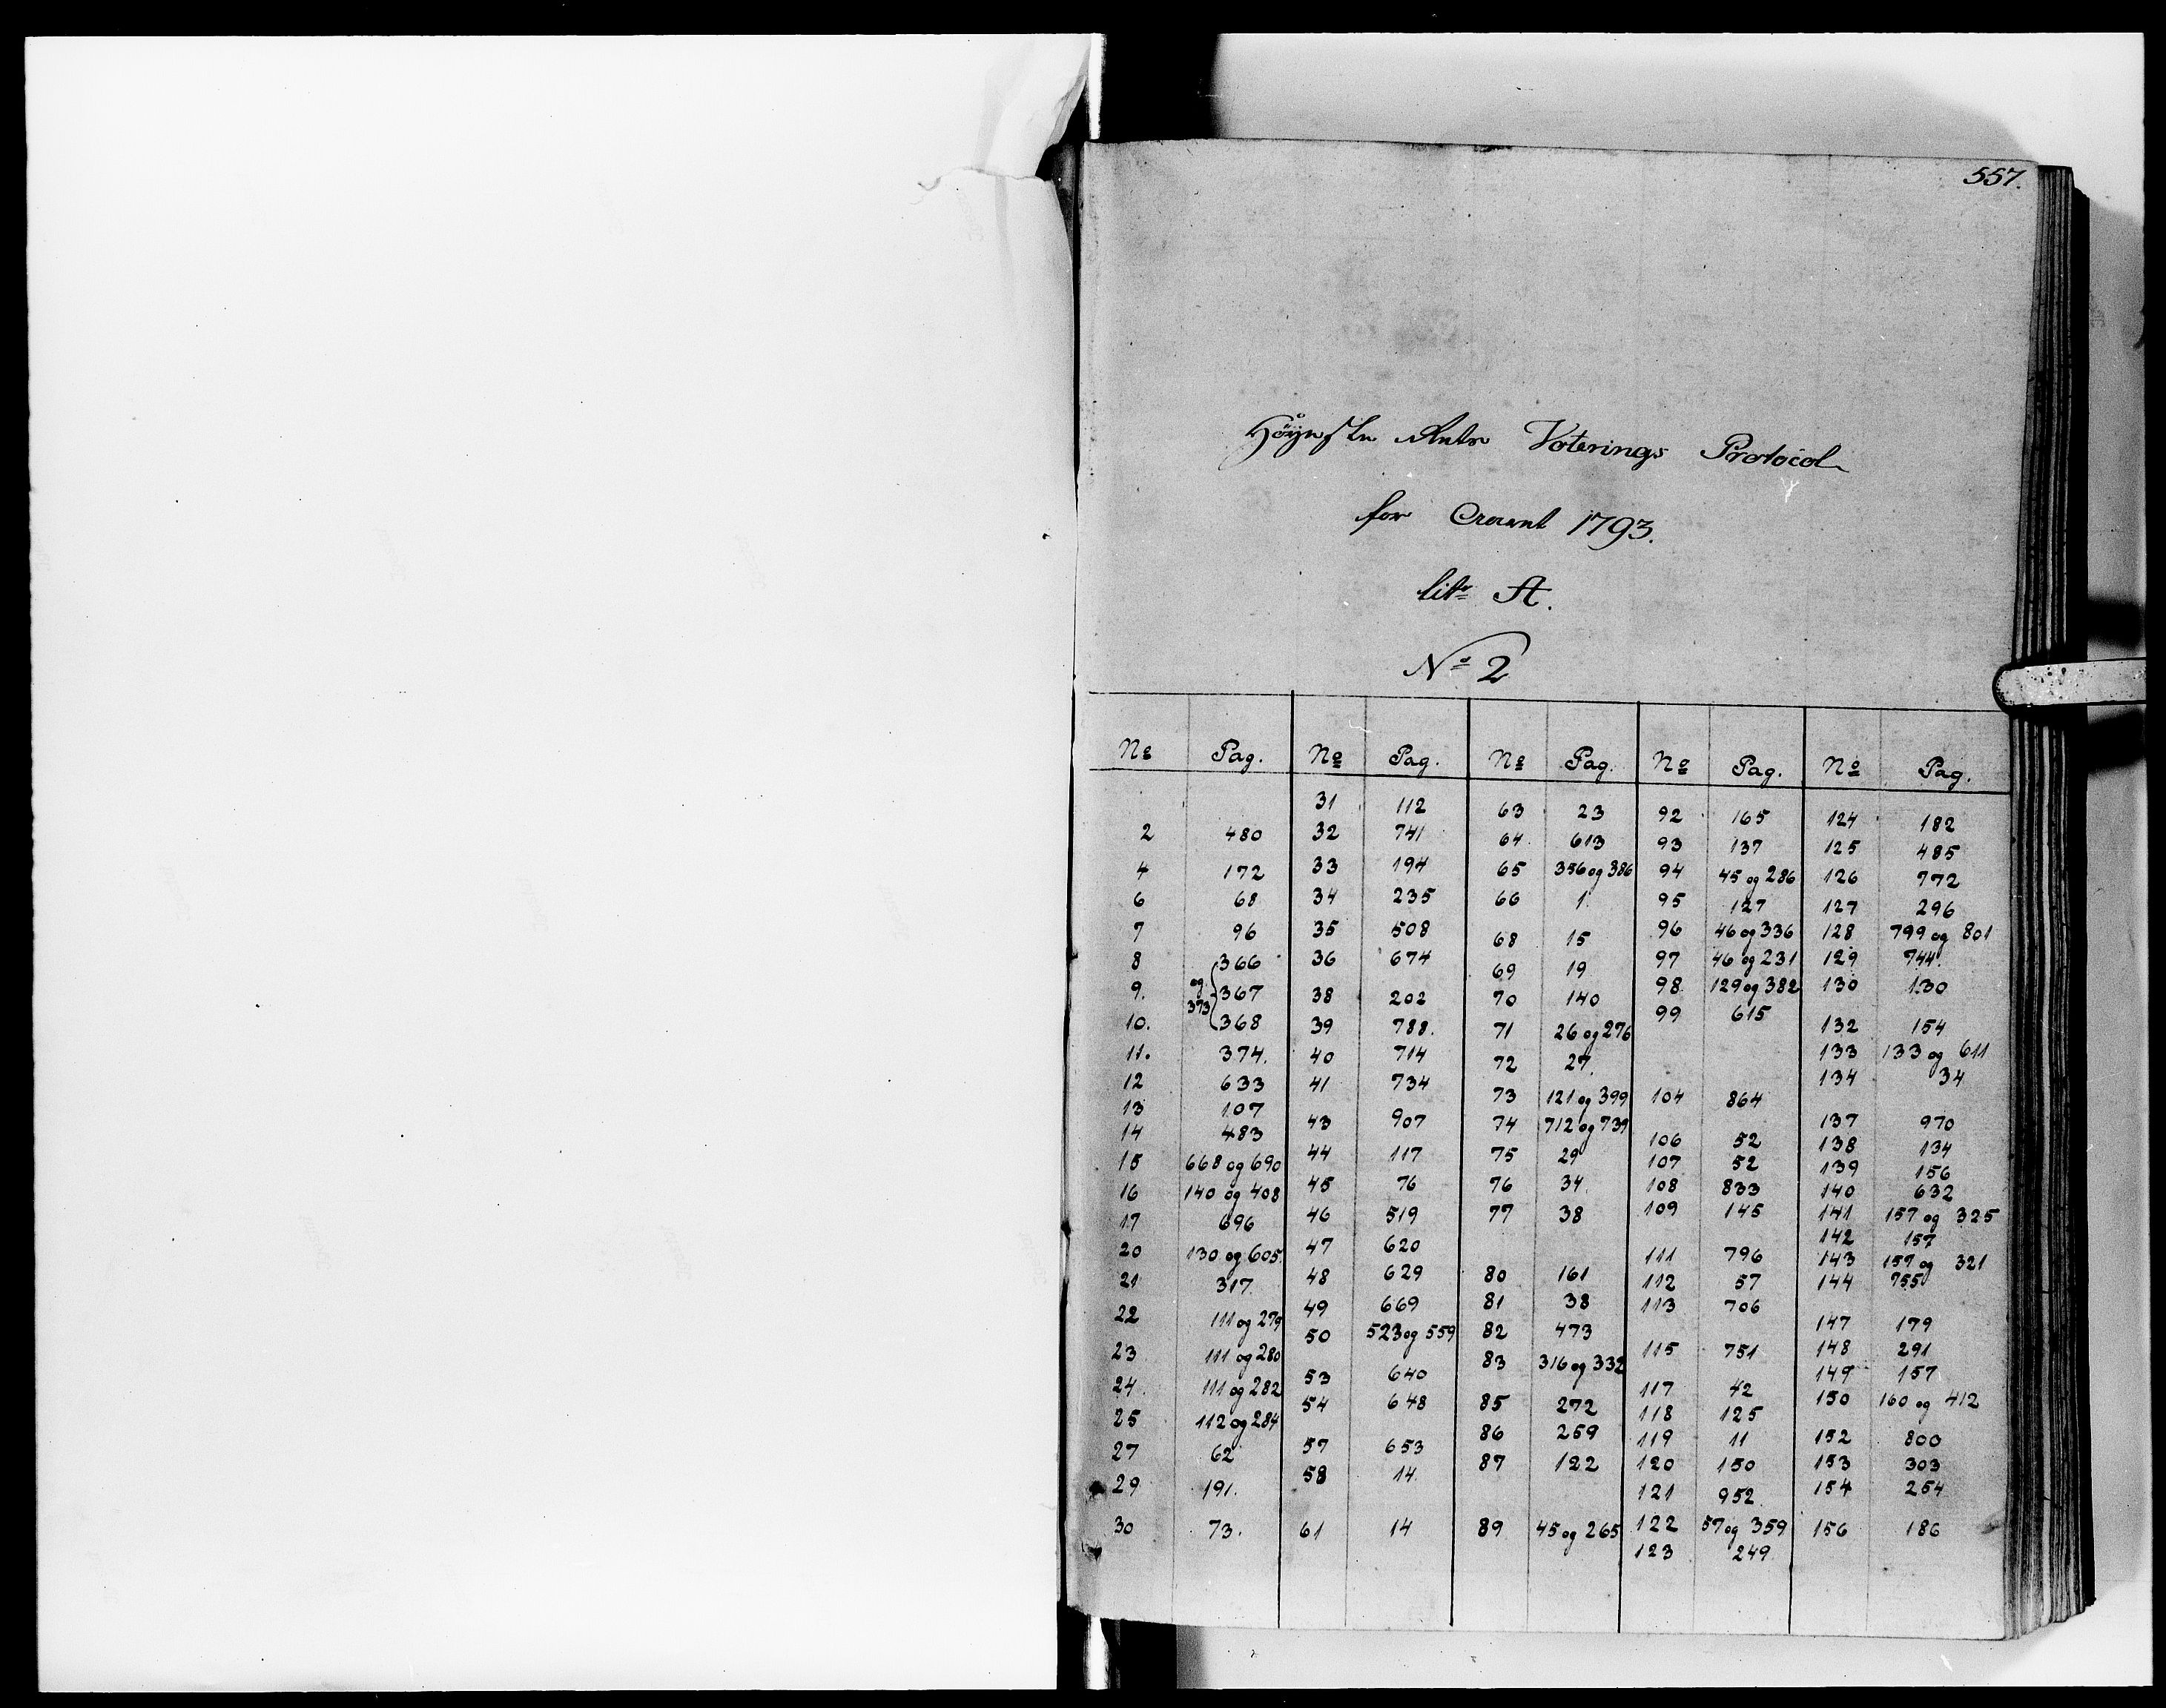 557.
Høyeste Rets Voterings Protocol
for Aaret 1793.
litr A.
No 2
No Pag. No Pag. No Pag. No Pag. No Pag.
31 112 63 23 92 165 124 182
2 480 32 741 64 613 93 137 125 485
4 172 33 194 65 356 og 386 94 45 og 286 126 772
6 68 34 235 66 1 95 127 127 296
7 96 35 508 68 15 96 46 og 336 128 799 og 801
8 366 36 674 69 19 97 46 og 231 129 744
9. og 373 367 38 202 70 140 98 129 og 382 130 130
10. 368 39 788. 71 26 og 276 99 615 132 154
11. 374. 40 714 72 27 133 133 og 611
12 633 41 734 73 121 og 399 104 864 134 34
13 107 43 907 74 712 og 739 137 970
14 483 44 117 75 29 106 52 138 134
15 668 og 690 45 76 76 34. 107 52 139 156
16 140 og 408 46 519 77 38 108 833 140 632
17 696 47 620 109 145 141 157 og 325
20 130 og 605. 48 629 80 161 111 796 142 157
21 317. 49 669 81 38 112 57 143 157 og 321
22 111 og 279 50 523 og 559 82 473 113 706 144 755
23 111 og 280 53 640 83 316 og 332 115 751 147 179
24. 111 og 282 54 648 85 272 117 42 148 291
25 112 og 284 57 653 86 259 118 125 149 157
27 62 58 14. 87 122 119 11 150 160 og 412
29 191. 61 14 89 45 og 265 120 150 152 800
30 73. 121 952. 153 303
122 57 og 359 154 254
123 249 156 186